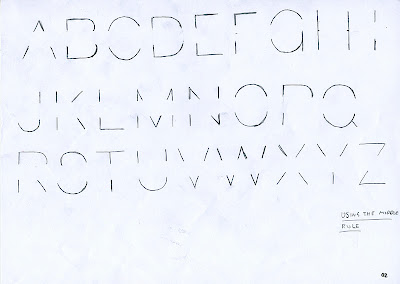 ABCDEFGHI
JKLMNOPQ
RSTUVWXYZ
USING THE MIDDLE
RULE
02